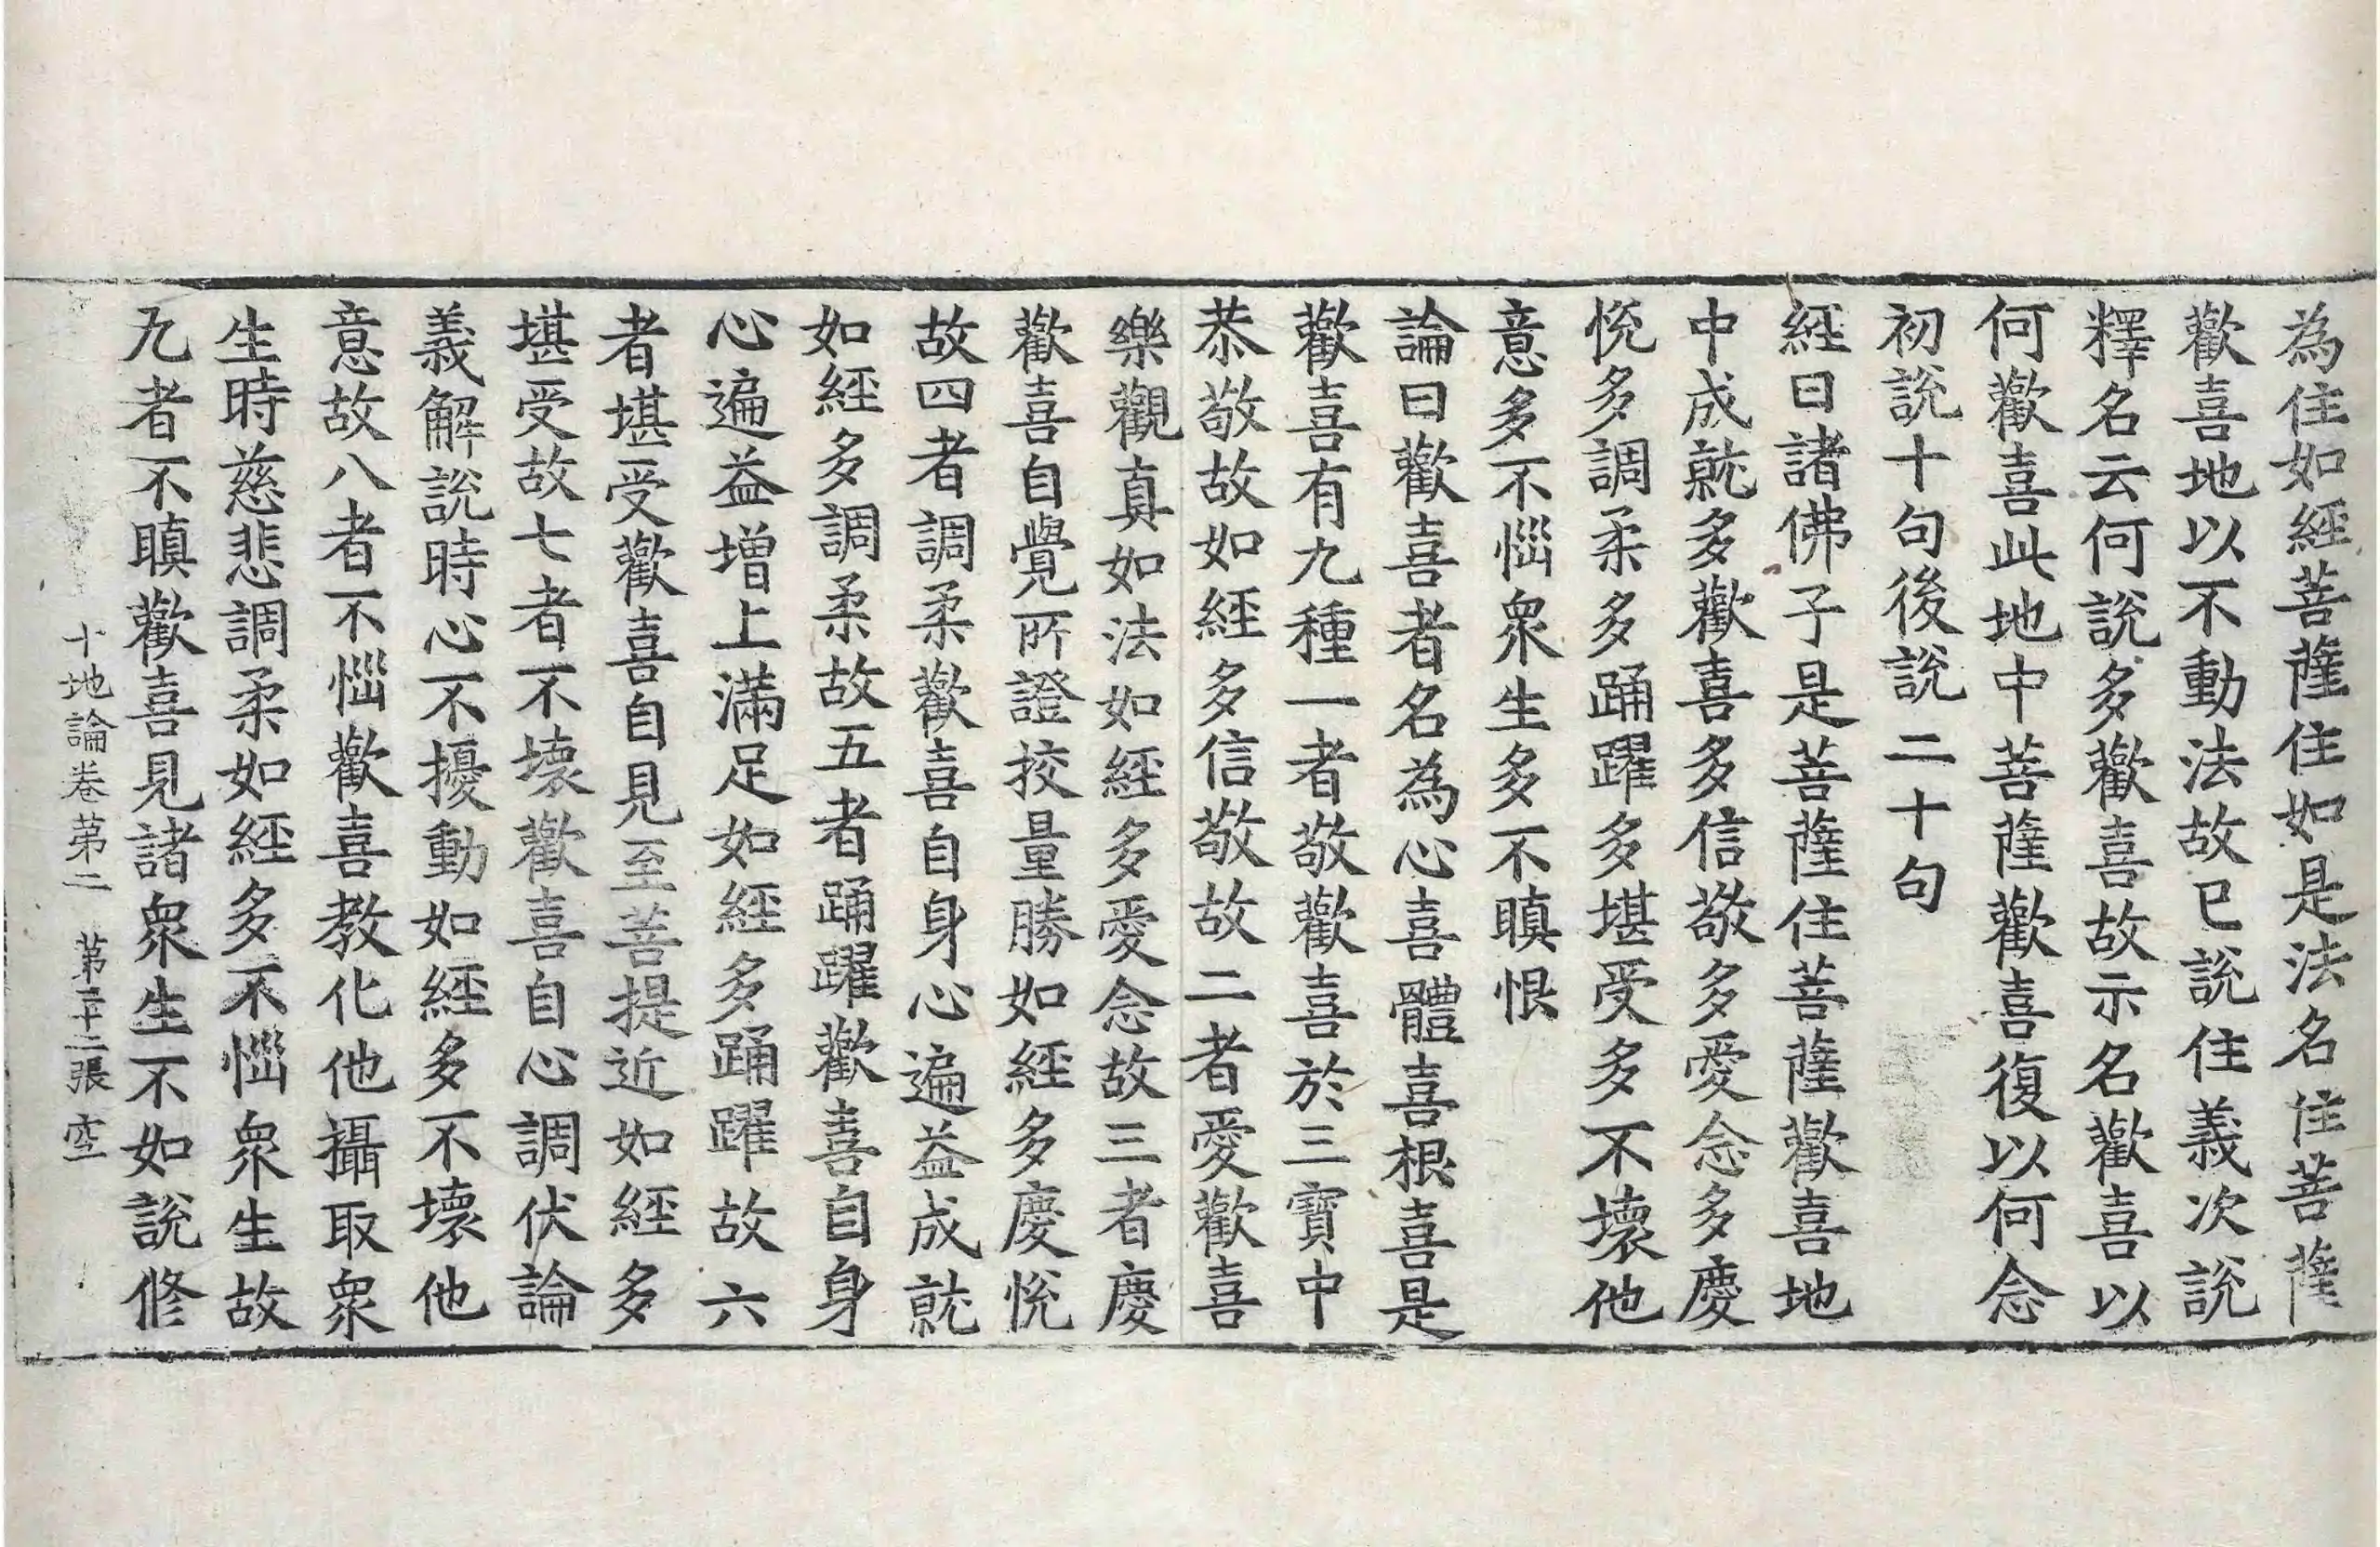 為住如經菩薩住如是法名住菩薩
歡喜地以不動法故已說住義次說
釋名云何說多歡喜故示名歡喜以
何歡喜此地中菩薩歡喜復以何念
初說十句後說二十句
經曰諸佛子是菩薩住菩薩歡喜地
中成就多歡喜多信敬多愛念多慶
悅多調柔多踊躍多堪受多不壞他
意多不惱眾生多不瞋恨
論曰歡喜者名為心喜體喜根喜是
歡喜有九種一者敬歡喜於三寶中
恭敬故如經多信敬故二者愛歡喜
樂觀真如法如經多愛念故三者慶
歡喜自覺所證挍量勝如經多慶悅
故四者調柔歡喜自身心遍益成就
如經多調柔故五者踊躍歡喜自身
心遍益增上滿足如經多踊躍故六
者堪受歡喜自見至菩提近如經多
堪受故七者不壞歡喜自心調伏論
義解說時心不擾動如經多不壞他
意故八者不惱歡喜教化他攝取眾
生時慈悲調柔如經多不惱眾生故
九者不瞋歡喜見諸眾生不如說修
十地論卷第二 第二十二張 空